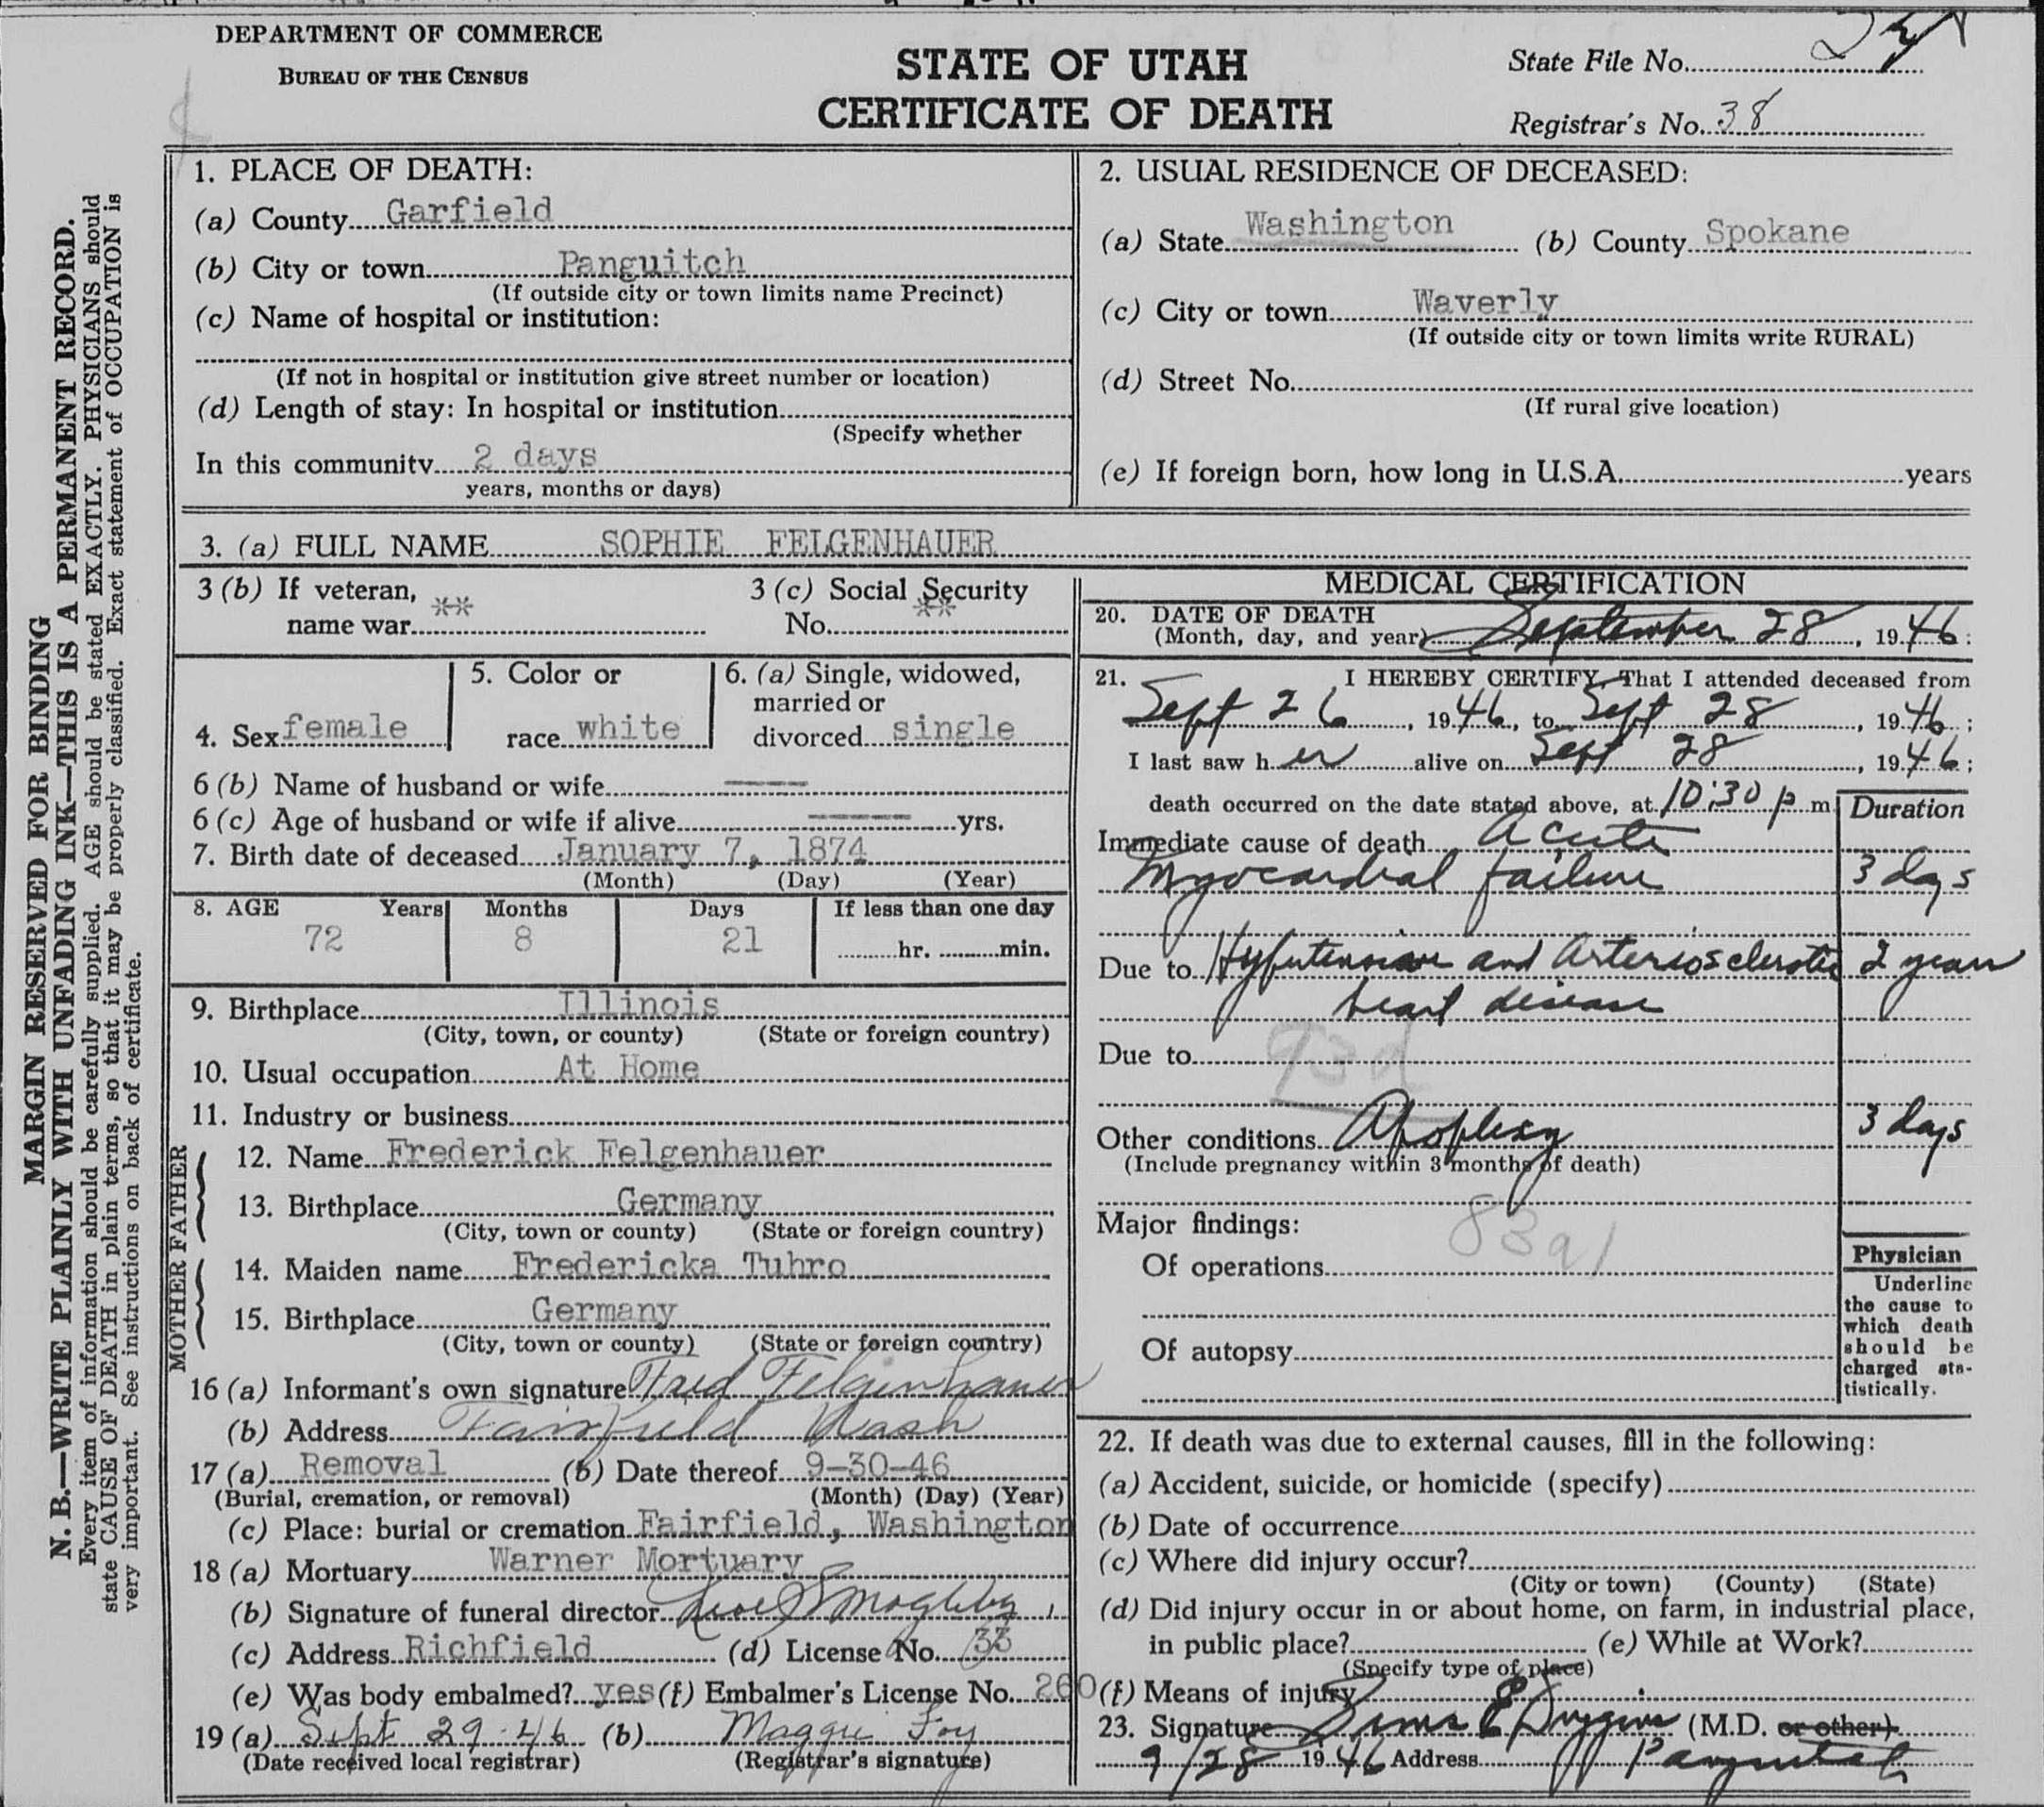 DEPARTMENT OF COMMERCE
BUREAU OF THE CENSUS
STATE OF UTAH
CERTIFICATE OF DEATH
State File No.
Registrar's No. 38
MARGIN RESERVED FOR BINDING
N. B.—WRITE PLAINLY WITH UNFADING INK—THIS IS A PERMANENT RECORD.
Every item of information should be carefully supplied. AGE should be stated EXACTLY. PHYSICIANS should
state CAUSE OF DEATH in plain terms, so that it may be properly classified. Exact statement of OCCUPATION is
very important. See instructions on back of certificate.
1. PLACE OF DEATH:
(a) County Garfield
(b) City or town Panguitch
(If outside city or town limits name Precinct)
(c) Name of hospital or institution:
(If not in hospital or institution give street number or location)
(d) Length of stay: In hospital or institution
(Specify whether
In this community 2 days
years, months or days)
2. USUAL RESIDENCE OF DECEASED:
(a) State Washington (b) County Spokane
(c) City or town Waverly
(If outside city or town limits write RURAL)
(d) Street No.
(If rural give location)
(e) If foreign born, how long in U.S.A. years
3. (a) FULL NAME SOPHIE FELGENHAUER
3 (b) If veteran,
name war **
3 (c) Social Security
No. **
4. Sex female
5. Color or
race white
6. (a) Single, widowed,
married or
divorced single
6 (b) Name of husband or wife ----
6 (c) Age of husband or wife if alive ----- yrs.
7. Birth date of deceased January 7, 1874
(Month) (Day) (Year)
8. AGE Years Months Days If less than one day
72 8 21 hr. min.
9. Birthplace Illinois
(City, town, or county) (State or foreign country)
10. Usual occupation At Home
11. Industry or business
FATHER
12. Name Frederick Felgenhauer
13. Birthplace Germany
(City, town or county) (State or foreign country)
MOTHER
14. Maiden name Fredericka Tuhro
15. Birthplace Germany
(City, town or county) (State or foreign country)
16 (a) Informant's own signature Fred Felgenhauer
(b) Address Fairfield Wash
17 (a) Removal (b) Date thereof 9-30-46
(Burial, cremation, or removal) (Month) (Day) (Year)
(c) Place: burial or cremation Fairfield, Washington
18 (a) Mortuary Warner Mortuary
(b) Signature of funeral director
(c) Address Richfield (d) License No. 33
(e) Was body embalmed? yes (f) Embalmer's License No. 260
19 (a) Sept 29-46 (b) Maggie Foy
(Date received local registrar) (Registrar's signature)
MEDICAL CERTIFICATION
20. DATE OF DEATH
(Month, day, and year) September 28, 1946:
21. I HEREBY CERTIFY, That I attended deceased from
Sept 26, 1946, to Sept 28, 1946;
I last saw her alive on Sept 28, 1946;
death occurred on the date stated above, at 10:30 p m
Duration
Immediate cause of death Acute
Myocardial failure 3 days
Due to Hypertensive and Arteriosclerotic 2 years
heart disease
Due to
93d
Other conditions Apoplexy 3 days
(Include pregnancy within 3 months of death)
83a1
Major findings:
Of operations
Of autopsy
Physician
Underline
the cause to
which death
should be
charged sta-
tistically.
22. If death was due to external causes, fill in the following:
(a) Accident, suicide, or homicide (specify)
(b) Date of occurrence
(c) Where did injury occur?
(City or town) (County) (State)
(d) Did injury occur in or about home, on farm, in industrial place,
in public place? (e) While at Work?
(Specify type of place)
(f) Means of injury
23. Signature Sims E Duggins (M.D. or other)
9/28 1946 Address Panguitch